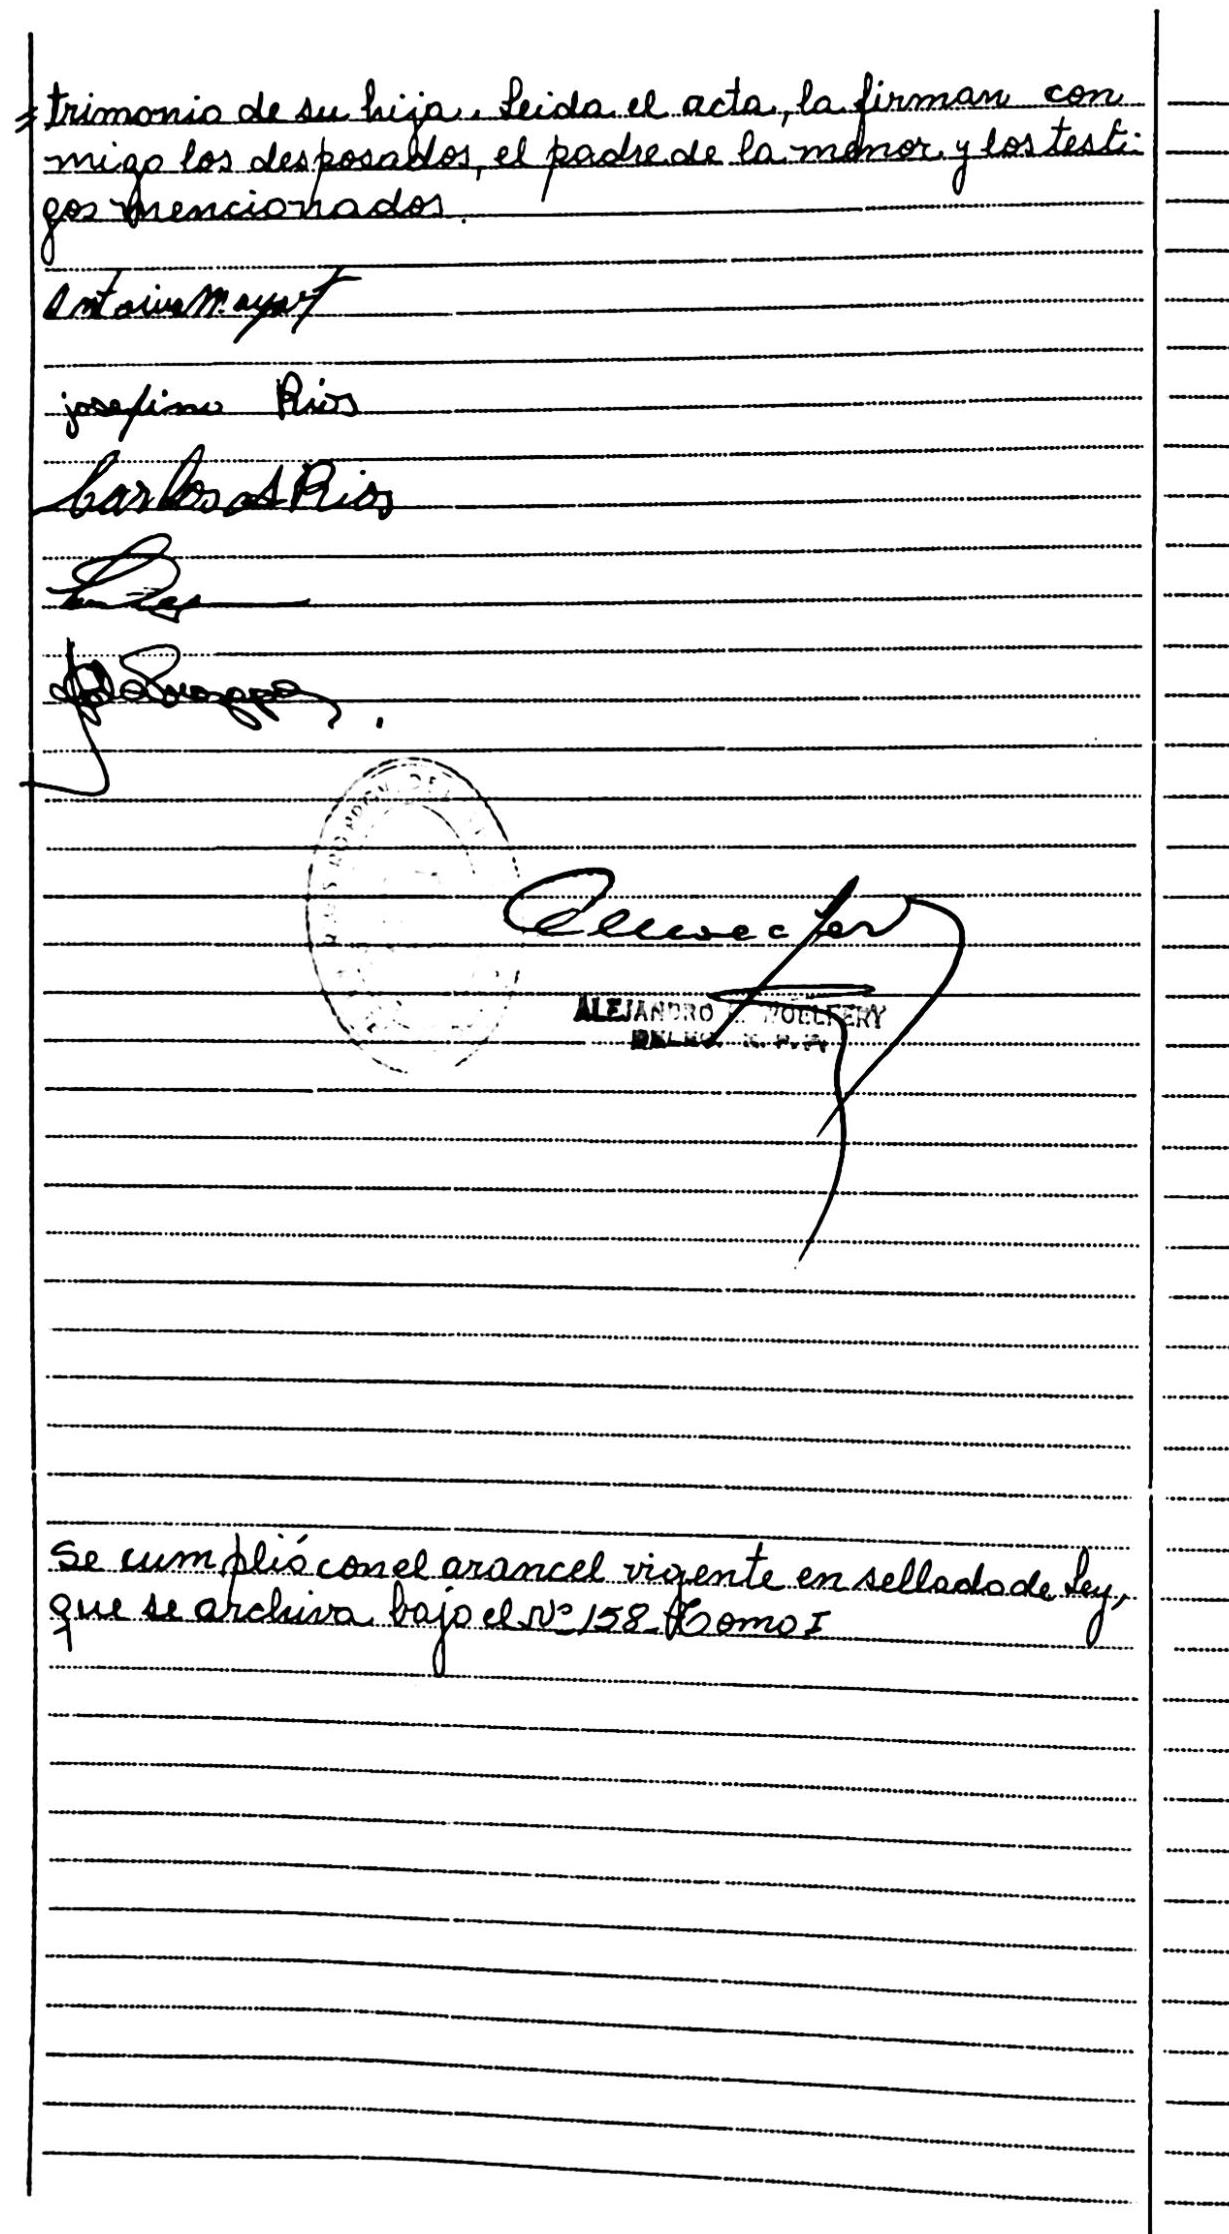 =trimonio de su hija. Leida el acta, la firman con
migo los desposados, el padre de la menor y los testi-
gos mencionados.
Antoine Mayart
josefina Rios
Carlos A Rios
ALEJANDRO WOELFERY
Se cumplió con el arancel vigente en sellado de Ley,
que se archiva bajo el Nº 158 - Tomo I